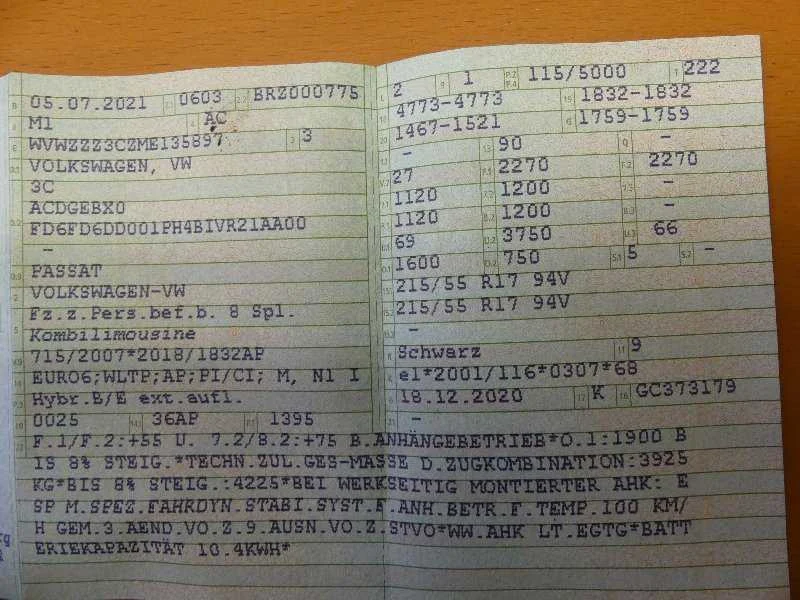 B 05.07.2021 2.1 0603 2.2 BRZ000775
J M1 4 AC
E WVWZZZ3CZME135897 3 3
D.1 VOLKSWAGEN, VW
3C
D.2 ACDGEBX0
FD6FD6DD001PH4BIVR21AA00
-
D.3 PASSAT
2 VOLKSWAGEN-VW
Fz.z.Pers.bef.b. 8 Spl.
5 Kombilimousine
V.9 715/2007*2018/1832AP
14 EURO6;WLTP;AP;PI/CI; M, N1 I
P.3 Hybr.B/E ext.aufl.
10 0025 14.1 36AP P.1 1395
L 2 9 1 P.2 P.4 115/5000 T 222
18 4773-4773 19 1832-1832
20 1467-1521 G 1759-1759
- 13 90 Q -
V.7 27 F.1 2270 F.2 2270
7.1 1120 7.2 1200 7.3 -
8.1 1120 8.2 1200 8.3 -
U.1 69 U.2 3750 U.3 66
O.1 1600 O.2 750 S.1 5 S.2 -
15.1 215/55 R17 94V
15.2 215/55 R17 94V
15.3 -
R Schwarz 11 9
K e1*2001/116*0307*68
6 18.12.2020 17 K 16 GC373179
21 -
22 F.1/F.2:+55 U. 7.2/8.2:+75 B.ANHÄNGEBETRIEB*O.1:1900 B
IS 8% STEIG.*TECHN.ZUL.GES-MASSE D.ZUGKOMBINATION:3925
KG*BIS 8% STEIG.:4225*BEI WERKSEITIG MONTIERTER AHK: E
SP M.SPEZ.FAHRDYN.STABI.SYST.F.ANH.BETR.F.TEMP.100 KM/
H GEM.3.AEND.VO.Z.9.AUSN.VO.Z.STVO*WW.AHK LT.EGTG*BATT
ERIEKAPAZITÄT 10.4KWH*